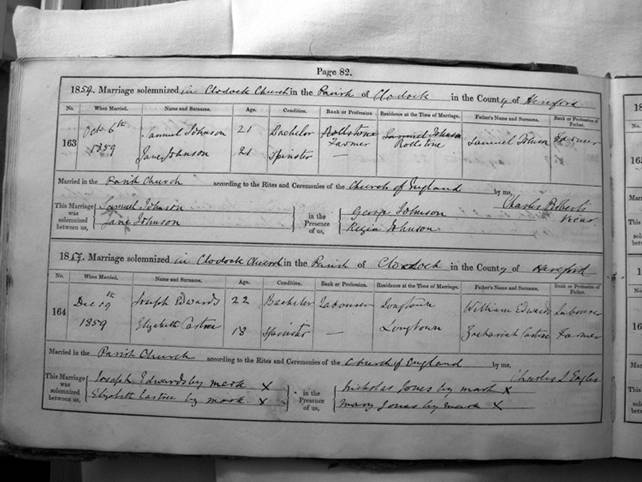 Page 82.
1859. Marriage solemnized in Clodock Church in the Parish of Clodock in the County of Hereford
No. When Married. Name and Surname. Age. Condition. Rank or Profession. Residence at the Time of Marriage. Father's Name and Surname. Rank or Profession of Father.
163 Oct 6th 1859 Samuel Johnson 21 Bachelor Farmer Samuel Johnson Farmer
Jane Johnson 21 Spinster —
Married in the Parish Church according to the Rites and Ceremonies of the Church of England by me, Charles Vicar
This Marriage was solemnized between us, Samuel Johnson Jane Johnson in the Presence of us, George Johnson Johnson
Marriage solemnized in Clodock Church in the Parish of Clodock in the County of Hereford
No. When Married. Name and Surname. Age. Condition. Rank or Profession. Residence at the Time of Marriage. Father's Name and Surname. Rank or Profession of Father.
164 Dec 1859 Joseph Edwards 22 Bachelor Labourer Longtown William Edwards Labourer
Elizabeth Eastree 18 Spinster — Longtown Zachariah Eastree Farmer
Married in the Parish Church according to the Rites and Ceremonies of the Church of England by me, Charles J Eagles
This Marriage was solemnized between us, Joseph Edwards by mark X Elizabeth Eastree by mark X in the Presence of us, Nicholas Jones by mark X Mary Jones by mark X